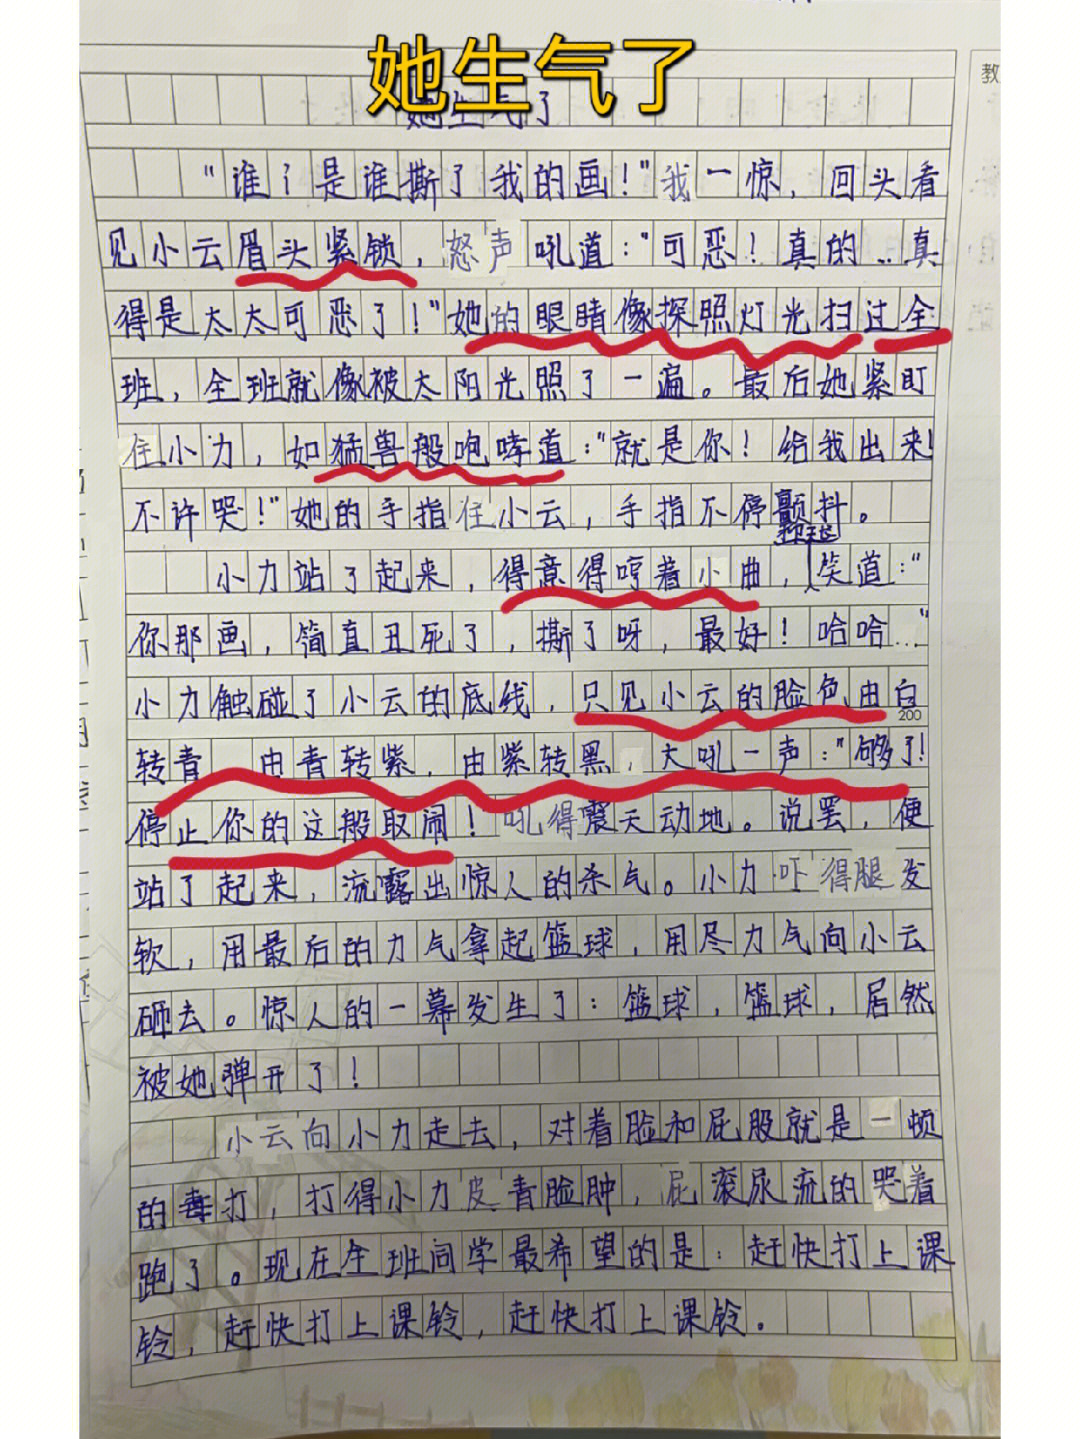 她生气了
她生气了
教
"谁？是谁撕了我的画！"我一惊，回头看
见小云眉头紧锁，怒声吼道："可恶！真的…真
得是太太可恶了！"她的眼睛像探照灯光扫过全
班，全班就像被太阳光照了一遍。最后她紧盯
住小力，如猛兽般咆哮道："就是你！给我出来！
不许哭！"她的手指住小云，手指不停颤抖。
小力站了起来，得意得哼着小曲，笑道："
你那画，简直丑死了，撕了呀，最好！哈哈…"
小力触碰了小云的底线，只见小云的脸色由白
200
转青 由青转紫，由紫转黑，大吼一声："够了！
停止你的这般取闹！吼得震天动地。说罢，便
站了起来，流露出惊人的杀气。小力吓得腿发
软，用最后的力气拿起篮球，用尽力气向小云
砸去。惊人的一幕发生了：篮球，篮球，居然
被她弹开了！
小云向小力走去，对着脸和屁股就是一顿
的毒打，打得小力皮青脸肿，屁滚尿流的哭着
跑了。现在全班同学最希望的是：赶快打上课
铃，赶快打上课铃，赶快打上课铃。